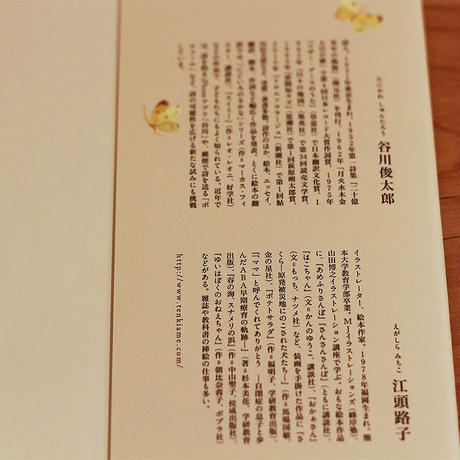 たにかわ しゅんたろう
谷川俊太郎
詩人。1931年東京生まれ。1952年第一詩集『二十億
光年の孤独』(創元社)を刊行。1962年「月火水木金
土日の歌」で第4回日本レコード大賞作詞賞、1975年
『マザー・グースのうた』(草思社)で日本翻訳文化賞、1
982年『日々の地図』(集英社)で第34回読売文学賞、
1993年『世間知ラズ』(思潮社)で第1回萩原朔太郎賞、
2010年『トロムソコラージュ』(新潮社)で第1回鮎
川信夫賞など、受賞・著書多数。詩作のほか、絵本、エッセイ、
翻訳、脚本、作詞など幅広く作品を発表。とくに絵本の翻
訳では、「にじいろのさかな」シリーズ(作=マーカス・フィ
スター、講談社)、『スイミー』(作=レオ・レオニ、好学社)
などの作品で、子どもたちにもよく知られている。近年で
は、詩を釣るiPhoneアプリ『谷川』や、郵便で詩を送る『ポ
エメール』など、詩の可能性を広げる新たな試みにも挑戦
している。
えがしら みちこ
江頭路子
イラストレーター、絵本作家。1978年福岡生まれ。熊
本大学教育学部卒業。MJイラストレーションズ(峰岸塾)、
山田博之イラストレーション講座で学ぶ。おもな絵本作品
に、『あめふりさんぽ』『さんさんさんぽ』(ともに講談社)、
『はこちゃん』(文=かんのゆうこ、講談社)、『おかあさん』
(文=もっち、ナツメ社)など、装画を手掛けた作品に『さ
くら―原発被災地にのこされた犬たち―』(作=馬場国敏、
金の星社)、『ポテトサラダ』(作=福明子、学研教育出版)、
『「ママ」と呼んでくれてありがとう ―自閉症の息子と歩
んだABA早期療育の軌跡―』(著=杉本美花、学研教育
出版)、『春の海、スナメリの浜』(作=中山聖子、佼成出版社)、
『ゆいはぼくのおねえちゃん』(作=朝比奈蓉子、ポプラ社)
などがある。雑誌や教科書の挿絵の仕事も多い。
http://www.senkiame.com/